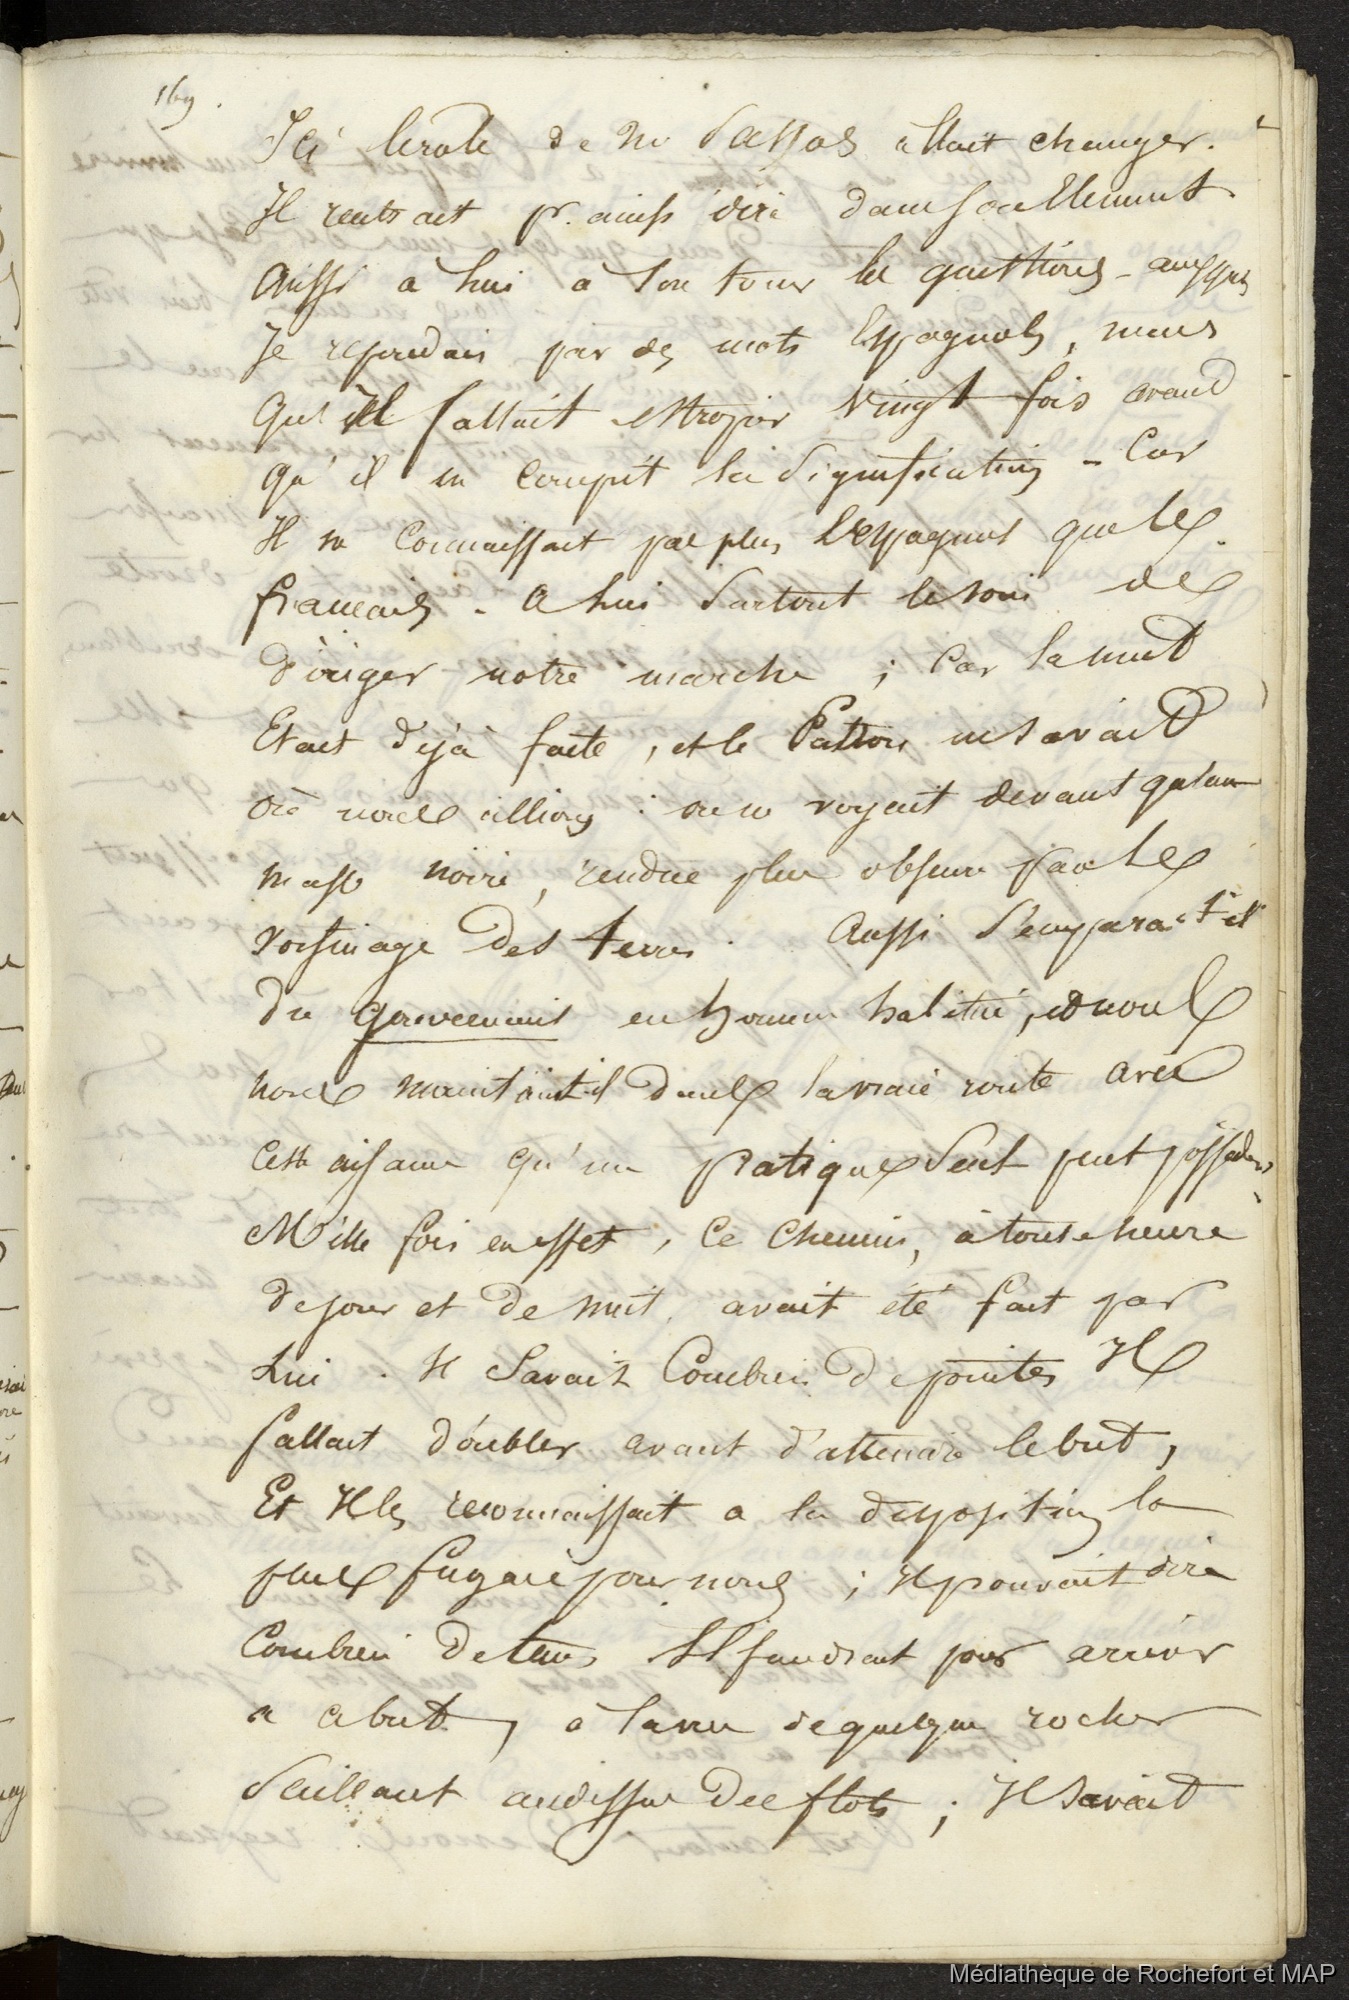 169.
Ici le role de Mr Dassas allait changer.
Il rentrait pr. ainsi dire dans son Element.
Aussi a lui a son tour les questions - auxquels
Je repondais par des mots Espagnols, mais
Qu'il fallait estropier vingt fois avant
qu'il en comprit la signification - Car
Il ne Connaissait pas plus l'espagnol que le
français. A lui surtout le soin de
diriger notre marche ; Car la nuit
Etait déjà faite, et le Patron ne savait
où nous allions : on ne voyait devant qu'une
masse noire, rendue plus obscure par le
voisinage des terres. Aussi s'empara-t-il
Du gouvernail en homme habitué, et nous
nous maintint-il dans la vraie route avec
cette aisance qu'un pratique seul peut posséder.
Mille fois en effet, Ce Chemin, à toute heure
de jour et de nuit, avait été fait par
Lui. Il Savait Combien de pointes Il
fallait doubler avant d'atteindre le but,
Et Il les reconnaissait a la disposition la
plus fugace pour nous ; Il pouvait dire
Combien de tems Il faudrait pour arriver
a ce but, à la vue de quelque rocher
Saillant au dessus des flots ; Il savait
Médiathèque de Rochefort et MAP